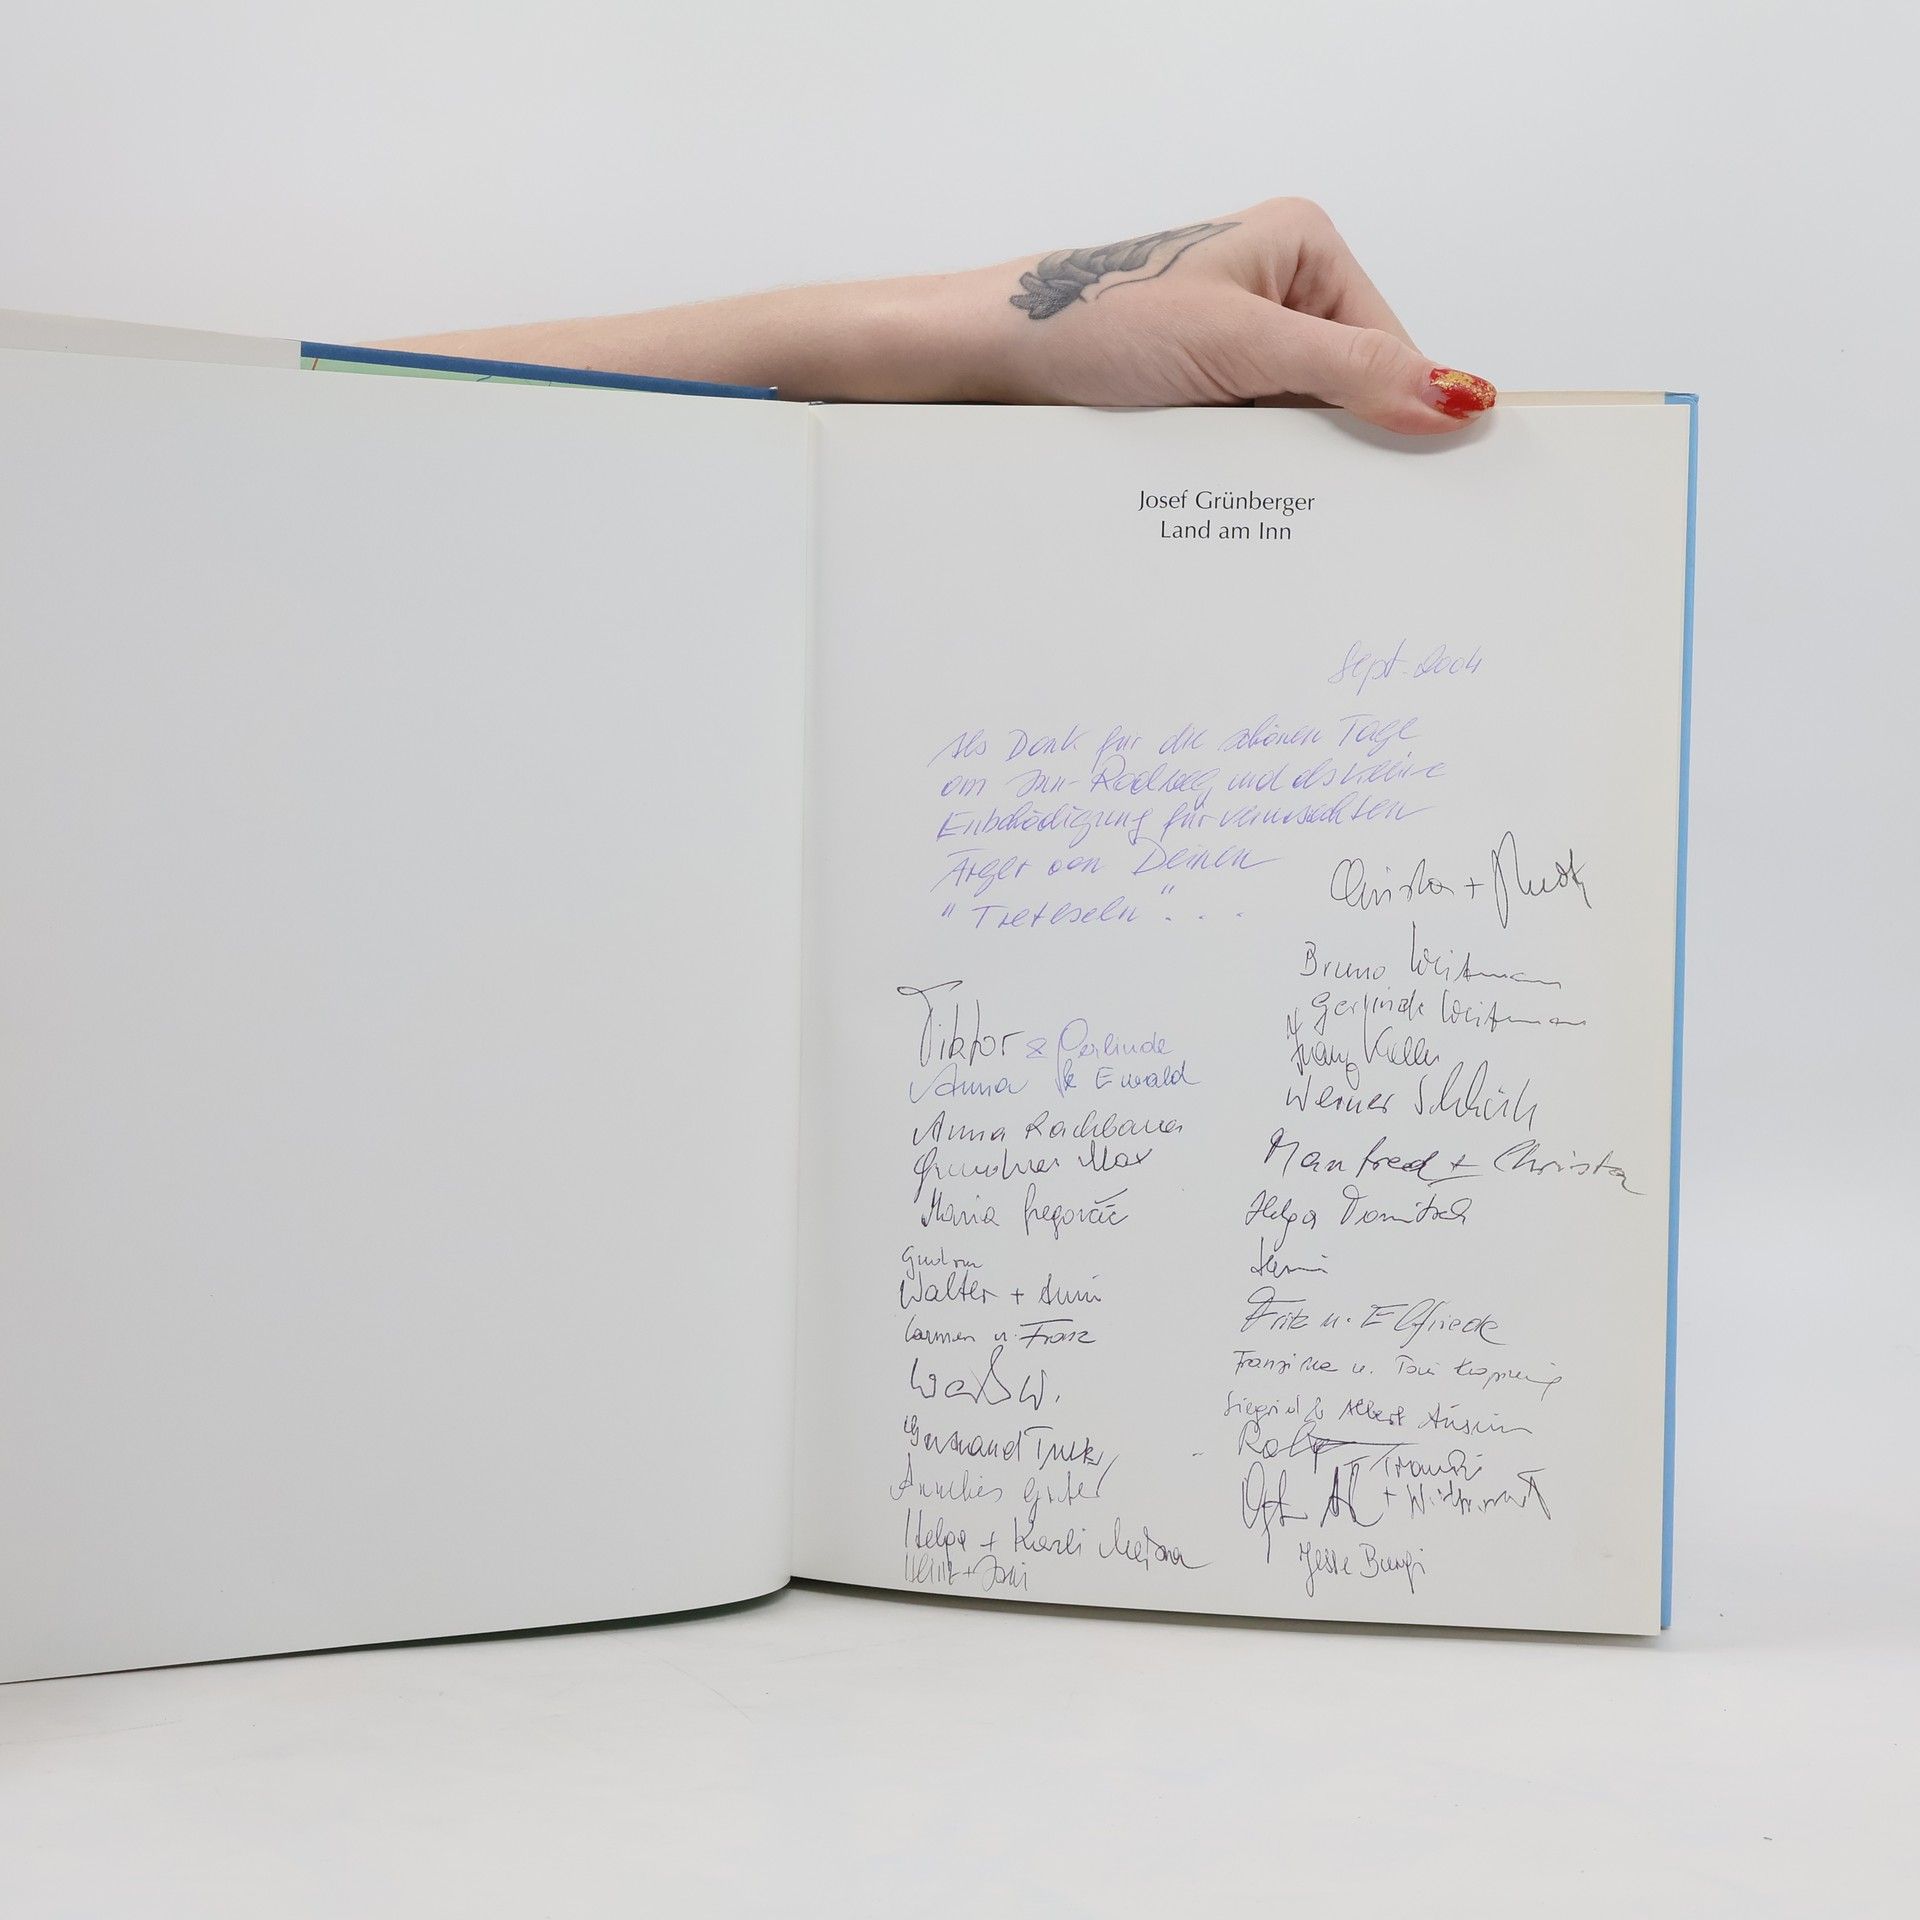 Josef Grünberger
Land am Inn
Sept. 2004
Als Dank für die schönen Tage
am Inn-Radweg und als kleine
Entschädigung für verursachten
Ärger von Deinen
"Treteseln" . . .
Christa +
Bruno Weitmann
Gerlinde Weitmann
Franz Keller
Werner
Manfred + Christa
Helga Domitsch
Fritz u. Elfriede
Franziska u. Toni
Siegrid & Albert
Rolf
Traudi
+
Burgi
Viktor & Gerlinde
Anna & Ewald
Anna Rachbauer
Max
Maria Gregorčič
Gudrun
Walter + Anni
Carmen u. Franz
W.
Annelies
Helga + Karli
Heinz +